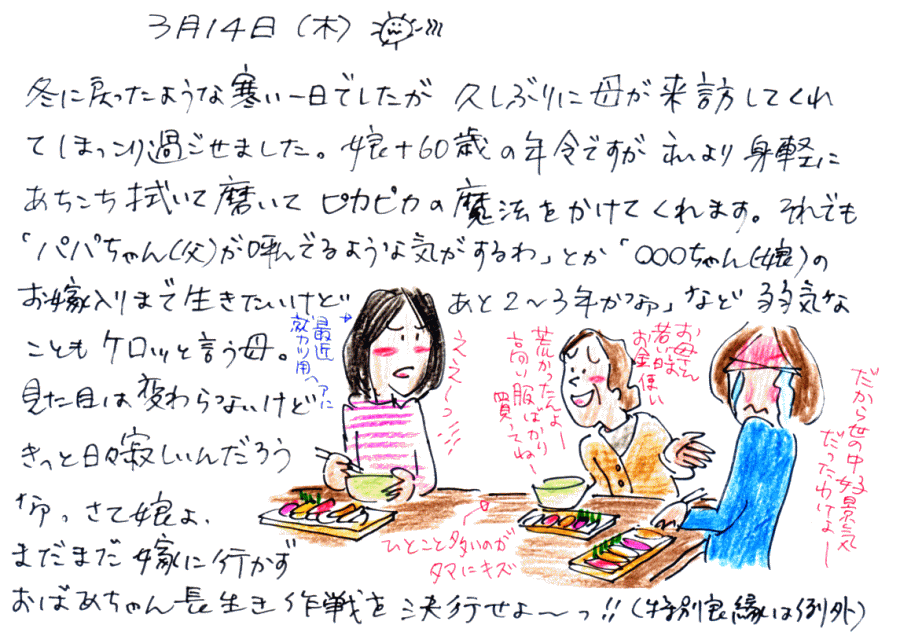 3月14日（木）
冬に戻ったような寒い一日でしたが 久しぶりに母が来訪してくれ
てほっこり過ごせました。娘+60歳の年令ですが 私より身軽に
あちこち拭いて磨いて ピカピカの魔法をかけてくれます。それでも
「パパちゃん(父)が呼んでるような気がするわ」とか「〇〇〇ちゃん(娘)の
お嫁入りまで生きたいけど あと2〜3年かなぁ」など 弱気な
ことも ケロッと言う母。
見た目は変わらないけど
きっと日々寂しいんだろう
なぁ。さて娘よ、
まだまだ嫁に行かず
おばあちゃん長生き作戦を 決行せよ〜っ!!（特別良縁は例外）
最近
就カツ用ヘアに
ええ〜っ
お母さん
若い時
お金使い
荒かったんよー
高い服ばかり
買ってねー
だから世の中好景気
だったわけよー
ひとこと多いのが
タマにキズ